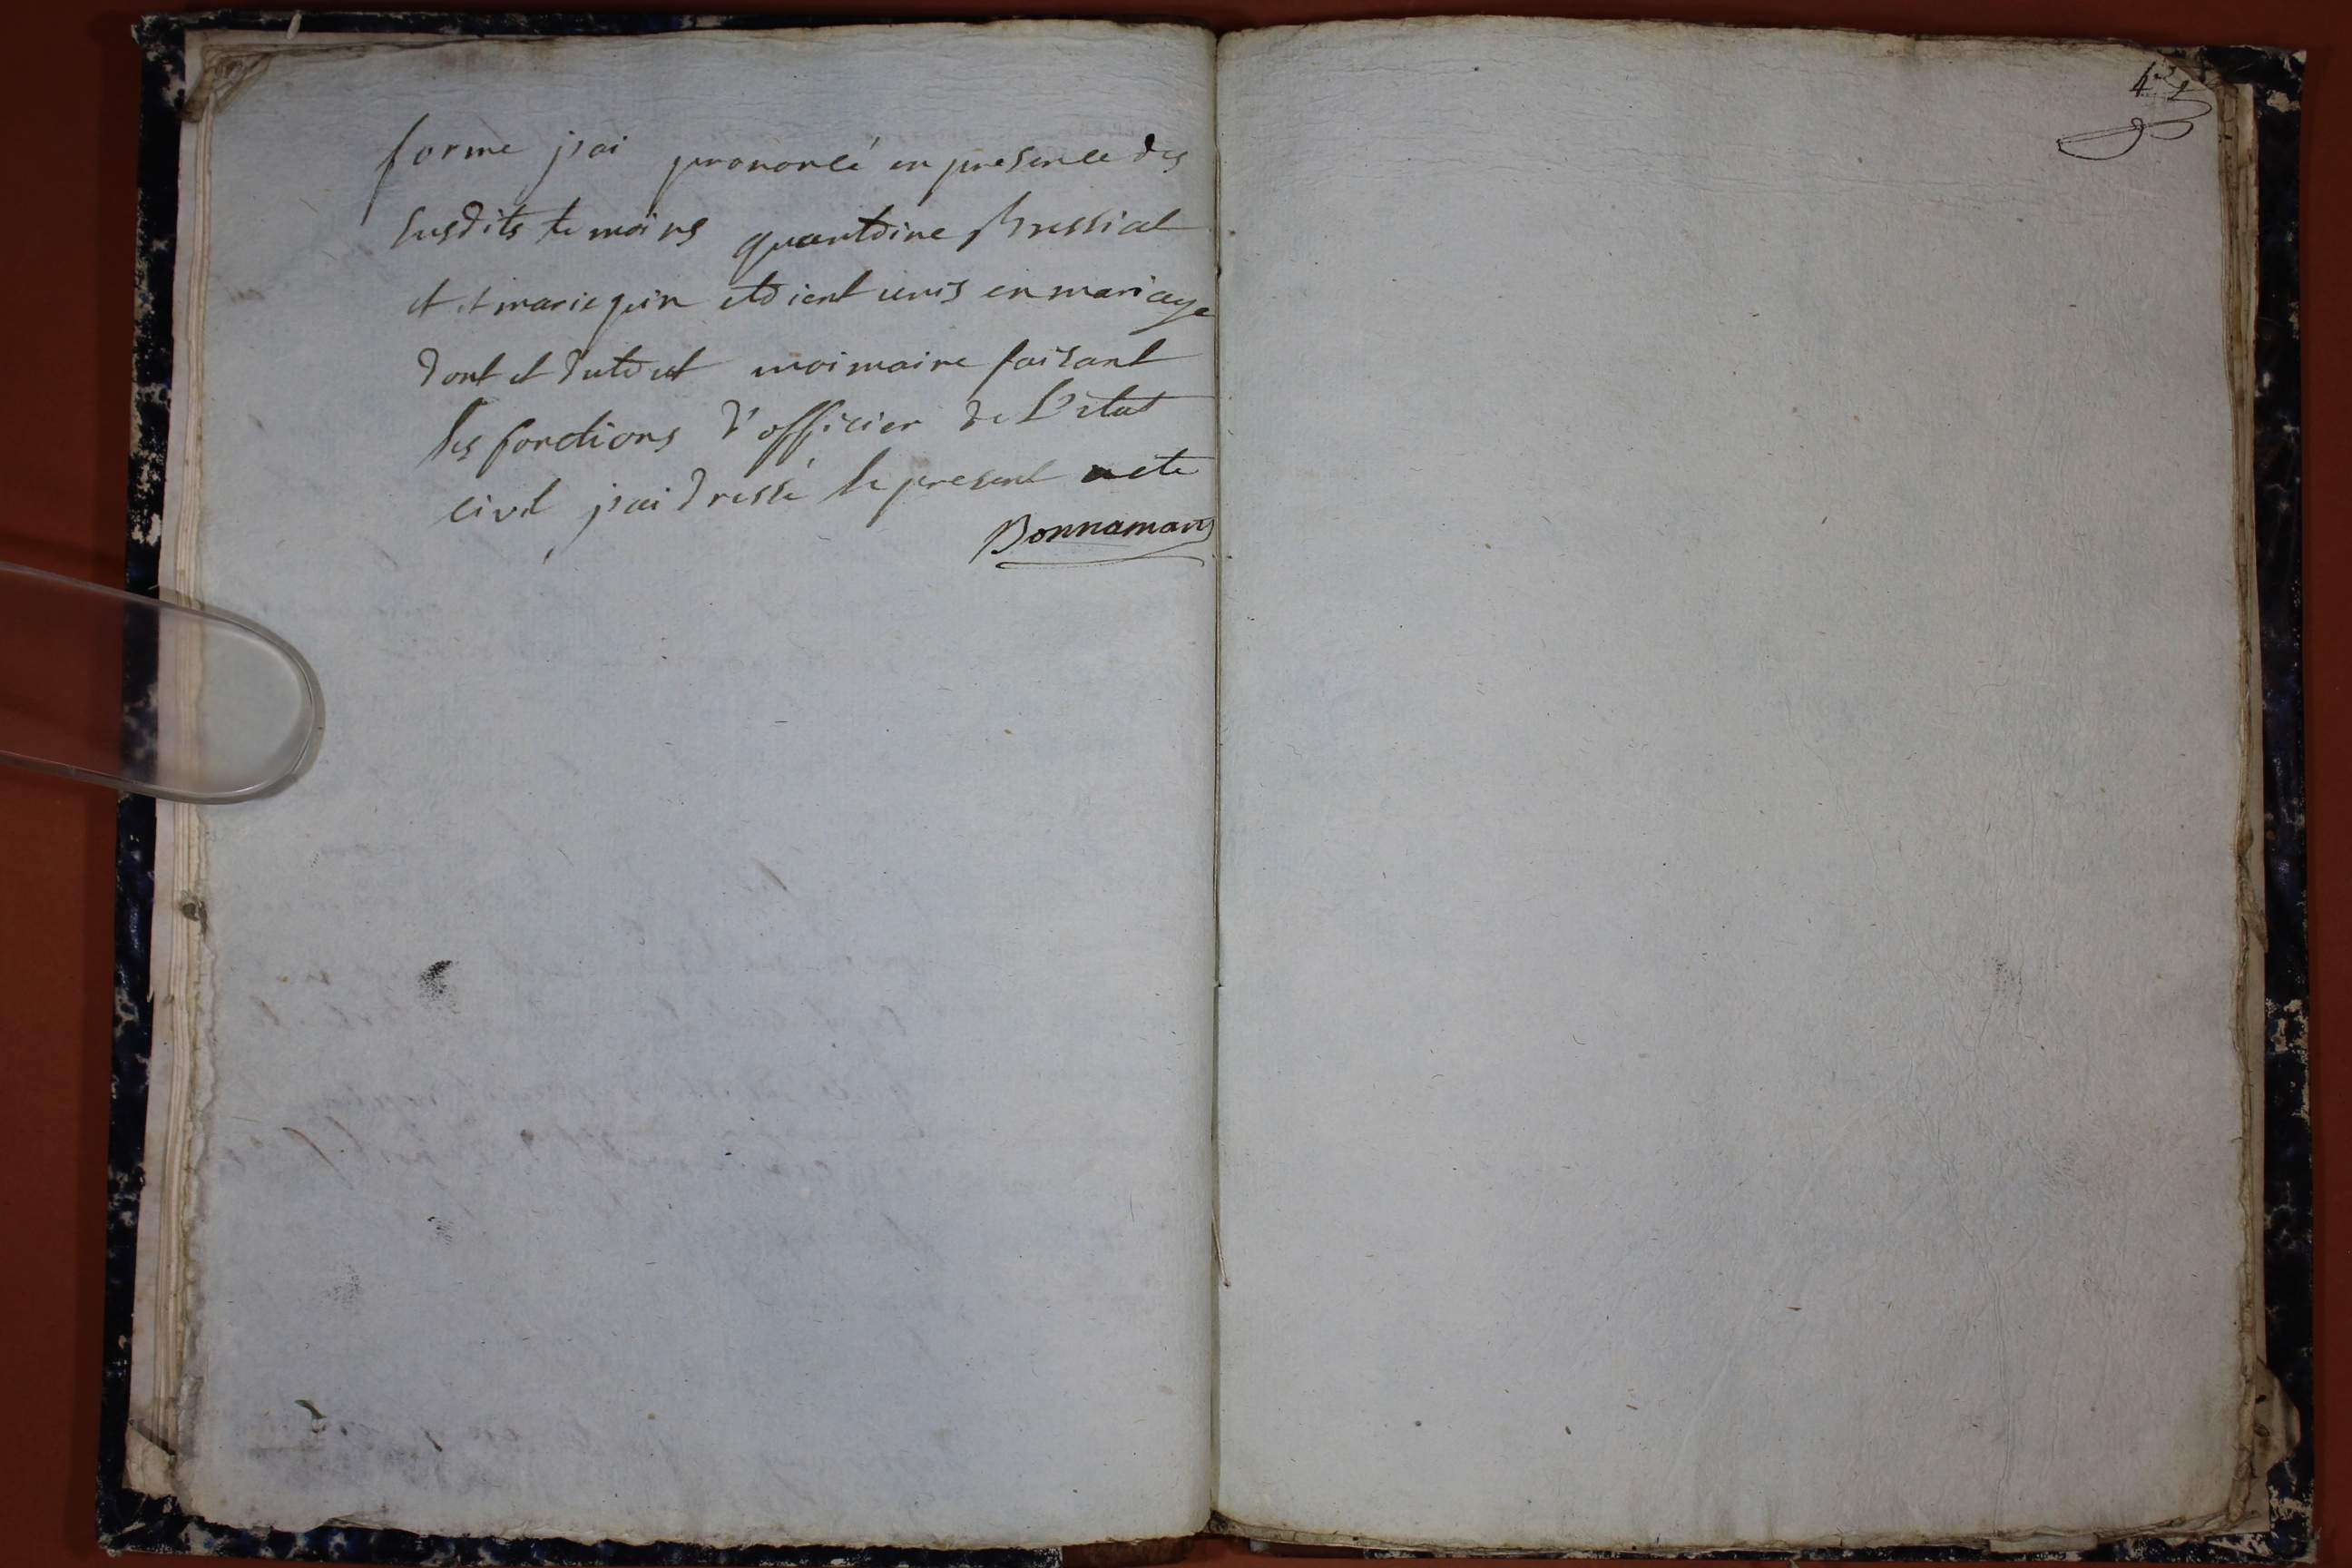 forme j'ai prononcé en presence des
susdits temoins quantoine Bressiat
et et marie etoient unis en mariage
dont et du tout moi maire faisant
les fonctions d'officier de L'etat
civil j'ai dressé le present acte
Bonnamant
4